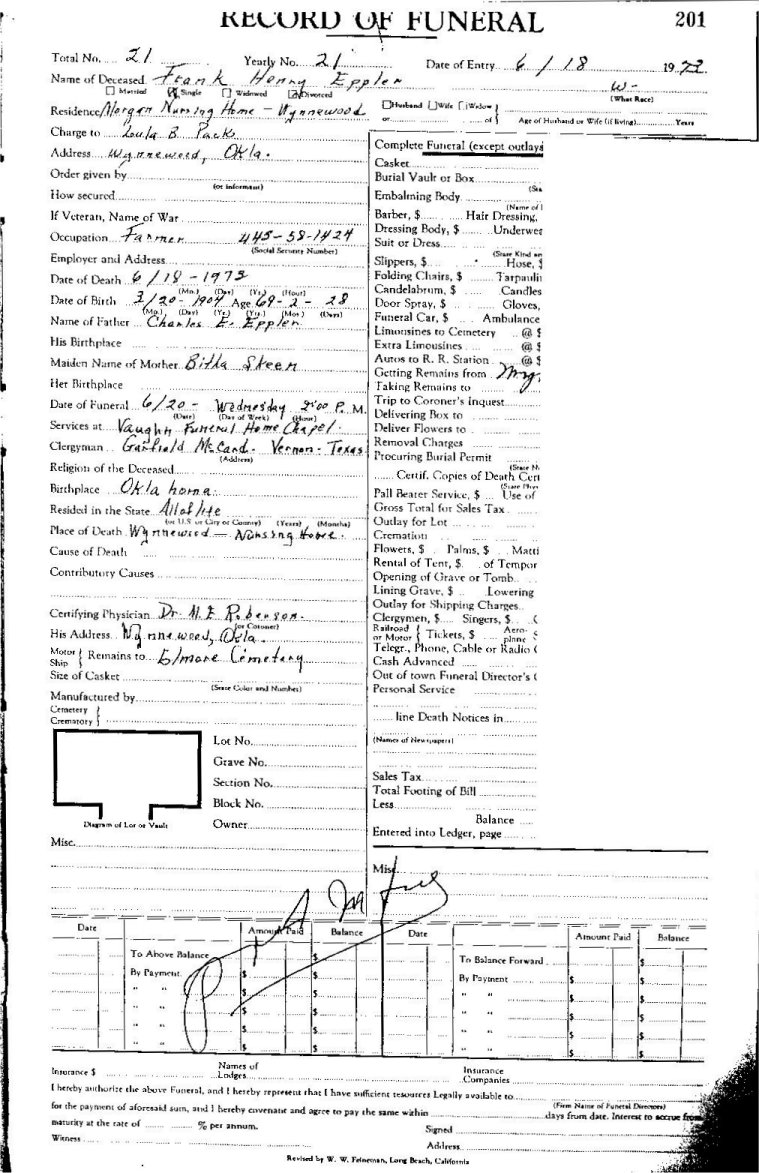 RECORD OF FUNERAL 201
Total No. 21 Yearly No. 21 Date of Entry 6 / 18 19 73
Name of Deceased Frank Henry Eppler W-
Married Single Widowed Divorced (What Race)
Residence Morgan Nursing Home - Wynnewood Husband Wife Widow
or of Age of Husband or Wife (if living) Years
Charge to Lula B. Pack
Address Wynnewood, Okla.
Order given by
(or informant)
How secured
If Veteran, Name of War
Occupation Farmer 445-58-1424
(Social Security Number)
Employer and Address
Date of Death 6 / 18 - 1973
(Mo.) (Day) (Yr.) (Hour)
Date of Birth 3/20- 1904 Age 69 - 2 - 28
(Mo.) (Day) (Yr.) (Yrs.) (Mos) (Days)
Name of Father Charles E. Eppler
His Birthplace
Maiden Name of Mother Skeen
Her Birthplace
Date of Funeral 6/20 - Wednesday 2:00 P. M.
(Date) (Day of Week) (Hour)
Services at Vaughn Funeral Home Chapel.
Clergyman Garfield McCard. Vernon - Texas
(Address)
Religion of the Deceased
Birthplace Okla homa
Resided in the State All of life
(or U.S. or City or County) (Years) (Months)
Place of Death Wynnewood - Nursing Home.
Cause of Death
Contributory Causes
Certifying Physician Dr. M. E. Roberson.
(or Coroner)
His Address Wynnewood, Okla.
Motor
Ship Remains to Elmore Cemetery
Size of Casket
(State Color and Number)
Manufactured by
Cemetery
Crematory
Lot No.
Grave No.
Section No.
Block No.
Diagram of Lot or Vault Owner
Misc.
Complete Funeral (except outlays
Casket
Burial Vault or Box
Embalming Body
(Name of
Barber, $ Hair Dressing,
Dressing Body, $ Underwea
Suit or Dress
(State Kind an
Slippers, $ Hose, $
Folding Chairs, $ Tarpaulin
Candelabrum, $ Candles
Door Spray, $ Gloves,
Funeral Car, $ Ambulance
Limousines to Cemetery @ $
Extra Limousines @ $
Autos to R. R. Station @ $
Getting Remains from
Taking Remains to
Trip to Coroner's Inquest
Delivering Box to
Deliver Flowers to
Removal Charges
Procuring Burial Permit
Certif. Copies of Death Cert
Pall Bearer Service, $ Use of
Gross Total for Sales Tax
Outlay for Lot
Cremation
Flowers, $ Palms, $ Matti
Rental of Tent, $ of Tempor
Opening of Grave or Tomb
Lining Grave, $ Lowering
Outlay for Shipping Charges
Clergymen, $ Singers, $
Railroad
or Motor Tickets, $ Aero-
plane
Telegr., Phone, Cable or Radio
Cash Advanced
Out of town Funeral Director's
Personal Service
line Death Notices in
(Names of Newspapers)
Sales Tax
Total Footing of Bill
Less
Balance
Entered into Ledger, page
Misc.
Date Amount Paid Balance Date Amount Paid Balance
To Above Balance $ To Balance Forward $
By Payment $ $ By Payment $ $
" " $ $ " " $ $
" " $ $ " " $ $
" " $ $ " " $ $
" " $ $ " " $ $
Insurance $ Names of
Lodges Insurance
Companies
I hereby authorize the above Funeral, and I hereby represent that I have sufficient resources Legally available to
(Firm Name of Funeral Directors)
for the payment of aforesaid sum, and I hereby covenant and agree to pay the same within days from date. Interest to accrue from
maturity at the rate of % per annum. Signed
Witness Address
Revised by W. W. Feineman, Long Beach, California